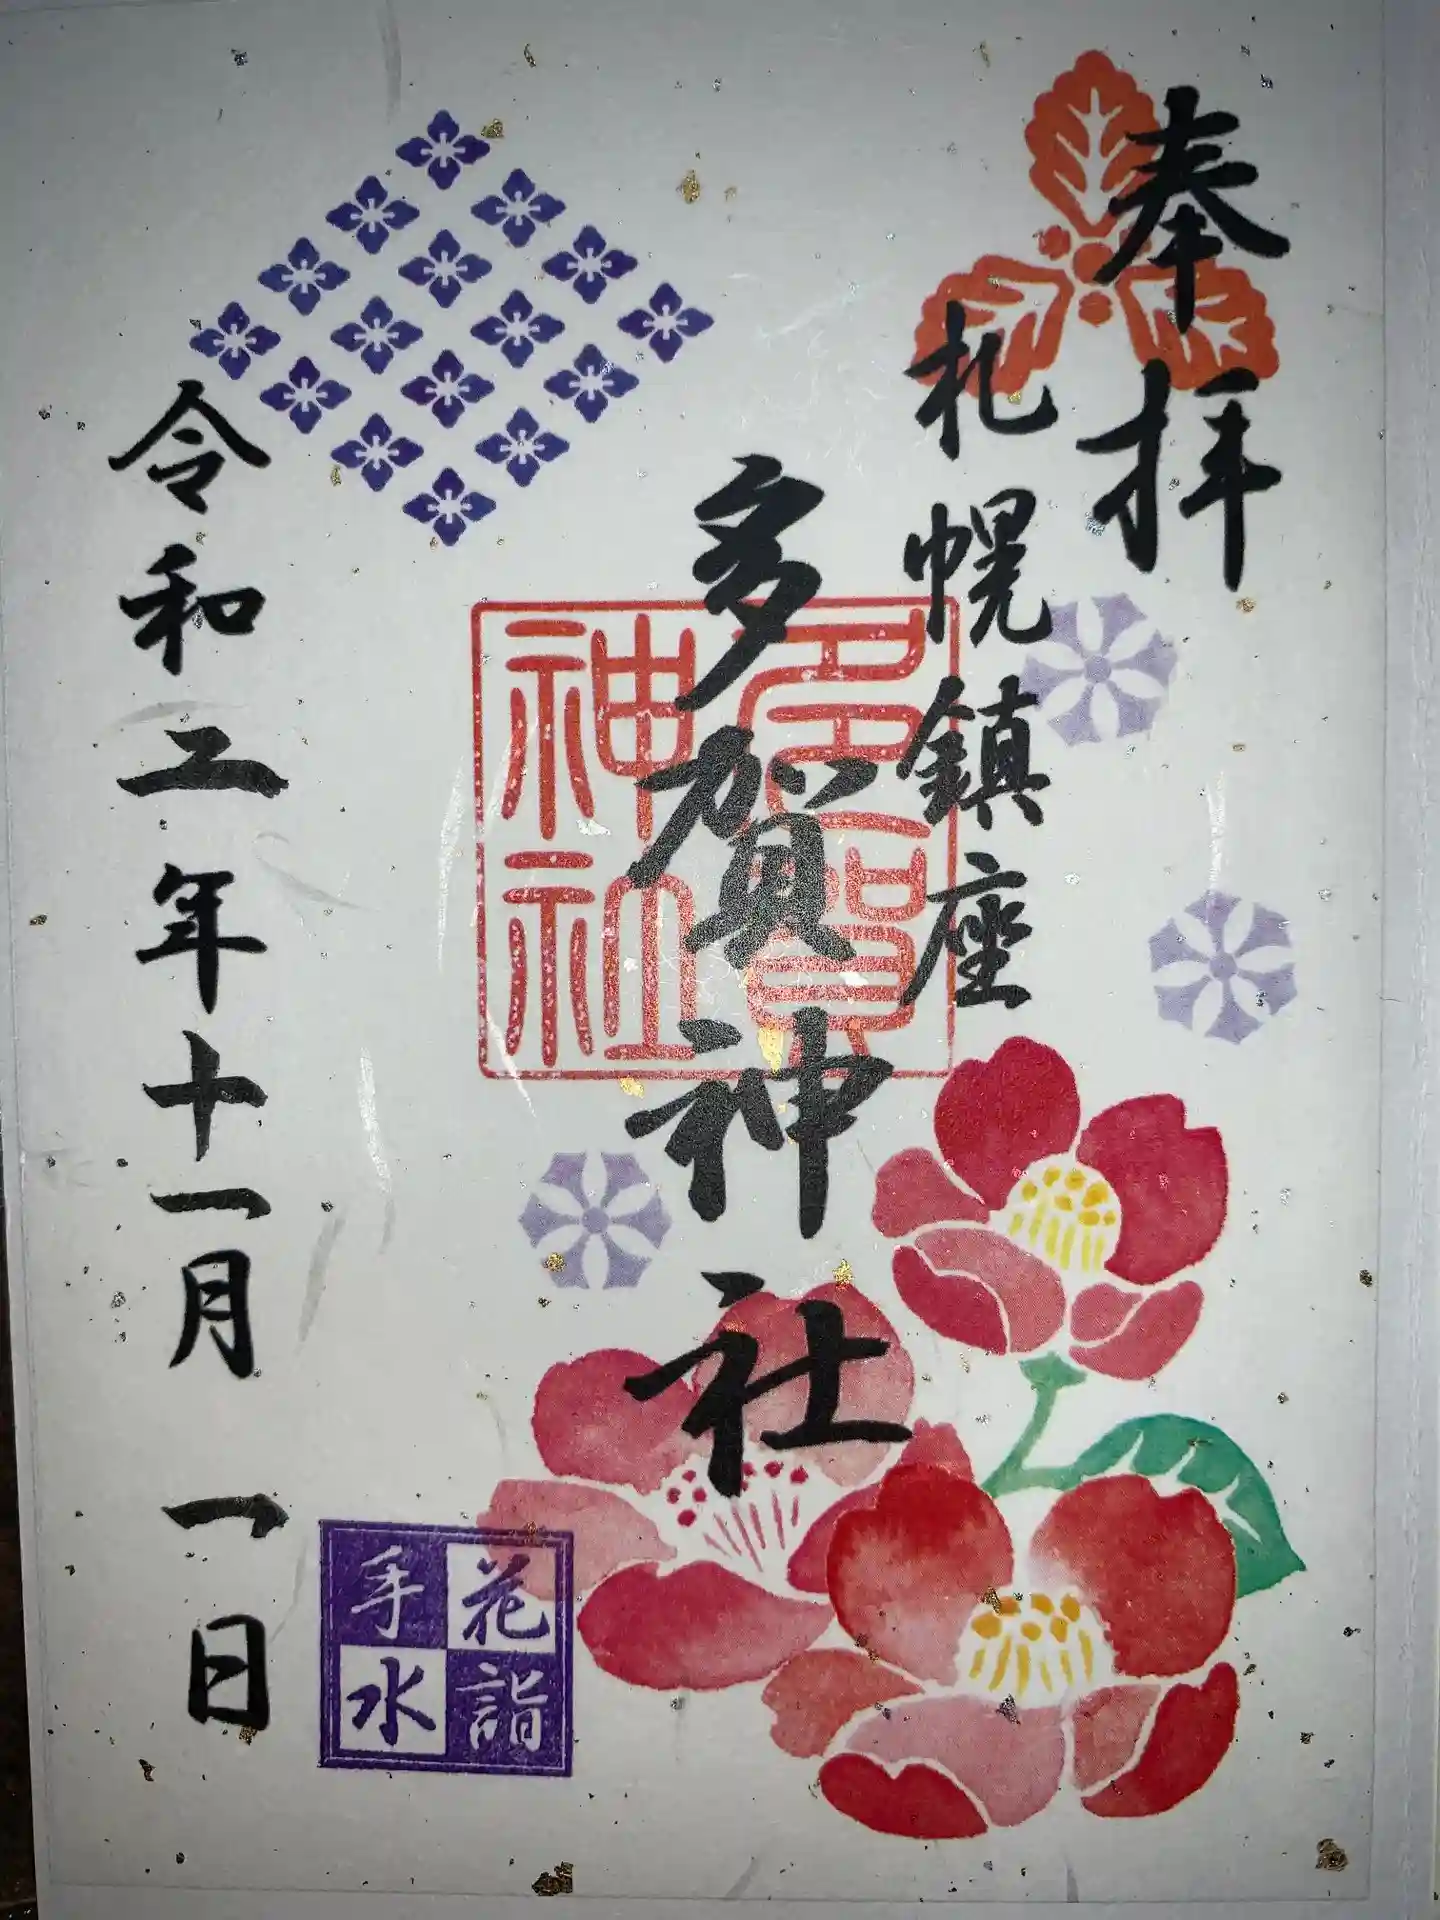 奉拝
札幌鎮座
多賀神社
多賀
神社
令和二年十一月一日
花詣
手水